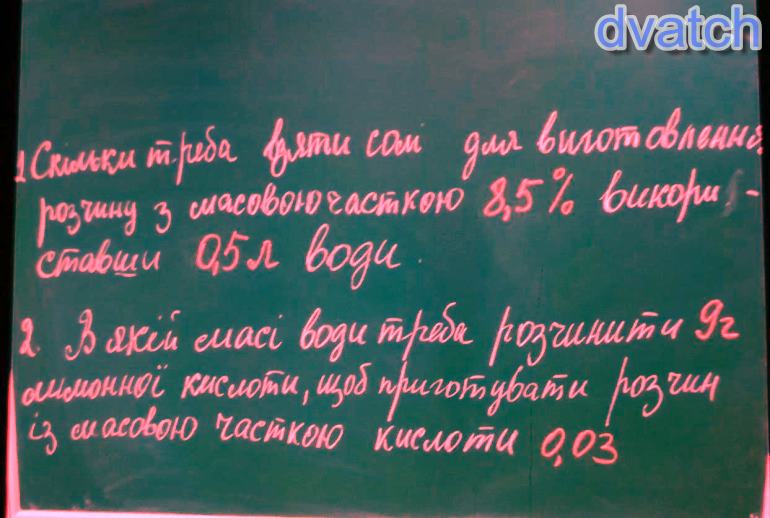 dvatch
1 Скільки треба взяти солі для виготовлення
розчину з масовою часткою 8,5% викори-
ставши 0,5 л води.
2. В якій масі води треба розчинити 9г
лимонної кислоти, щоб приготувати розчин
із масовою часткою кислоти 0,03